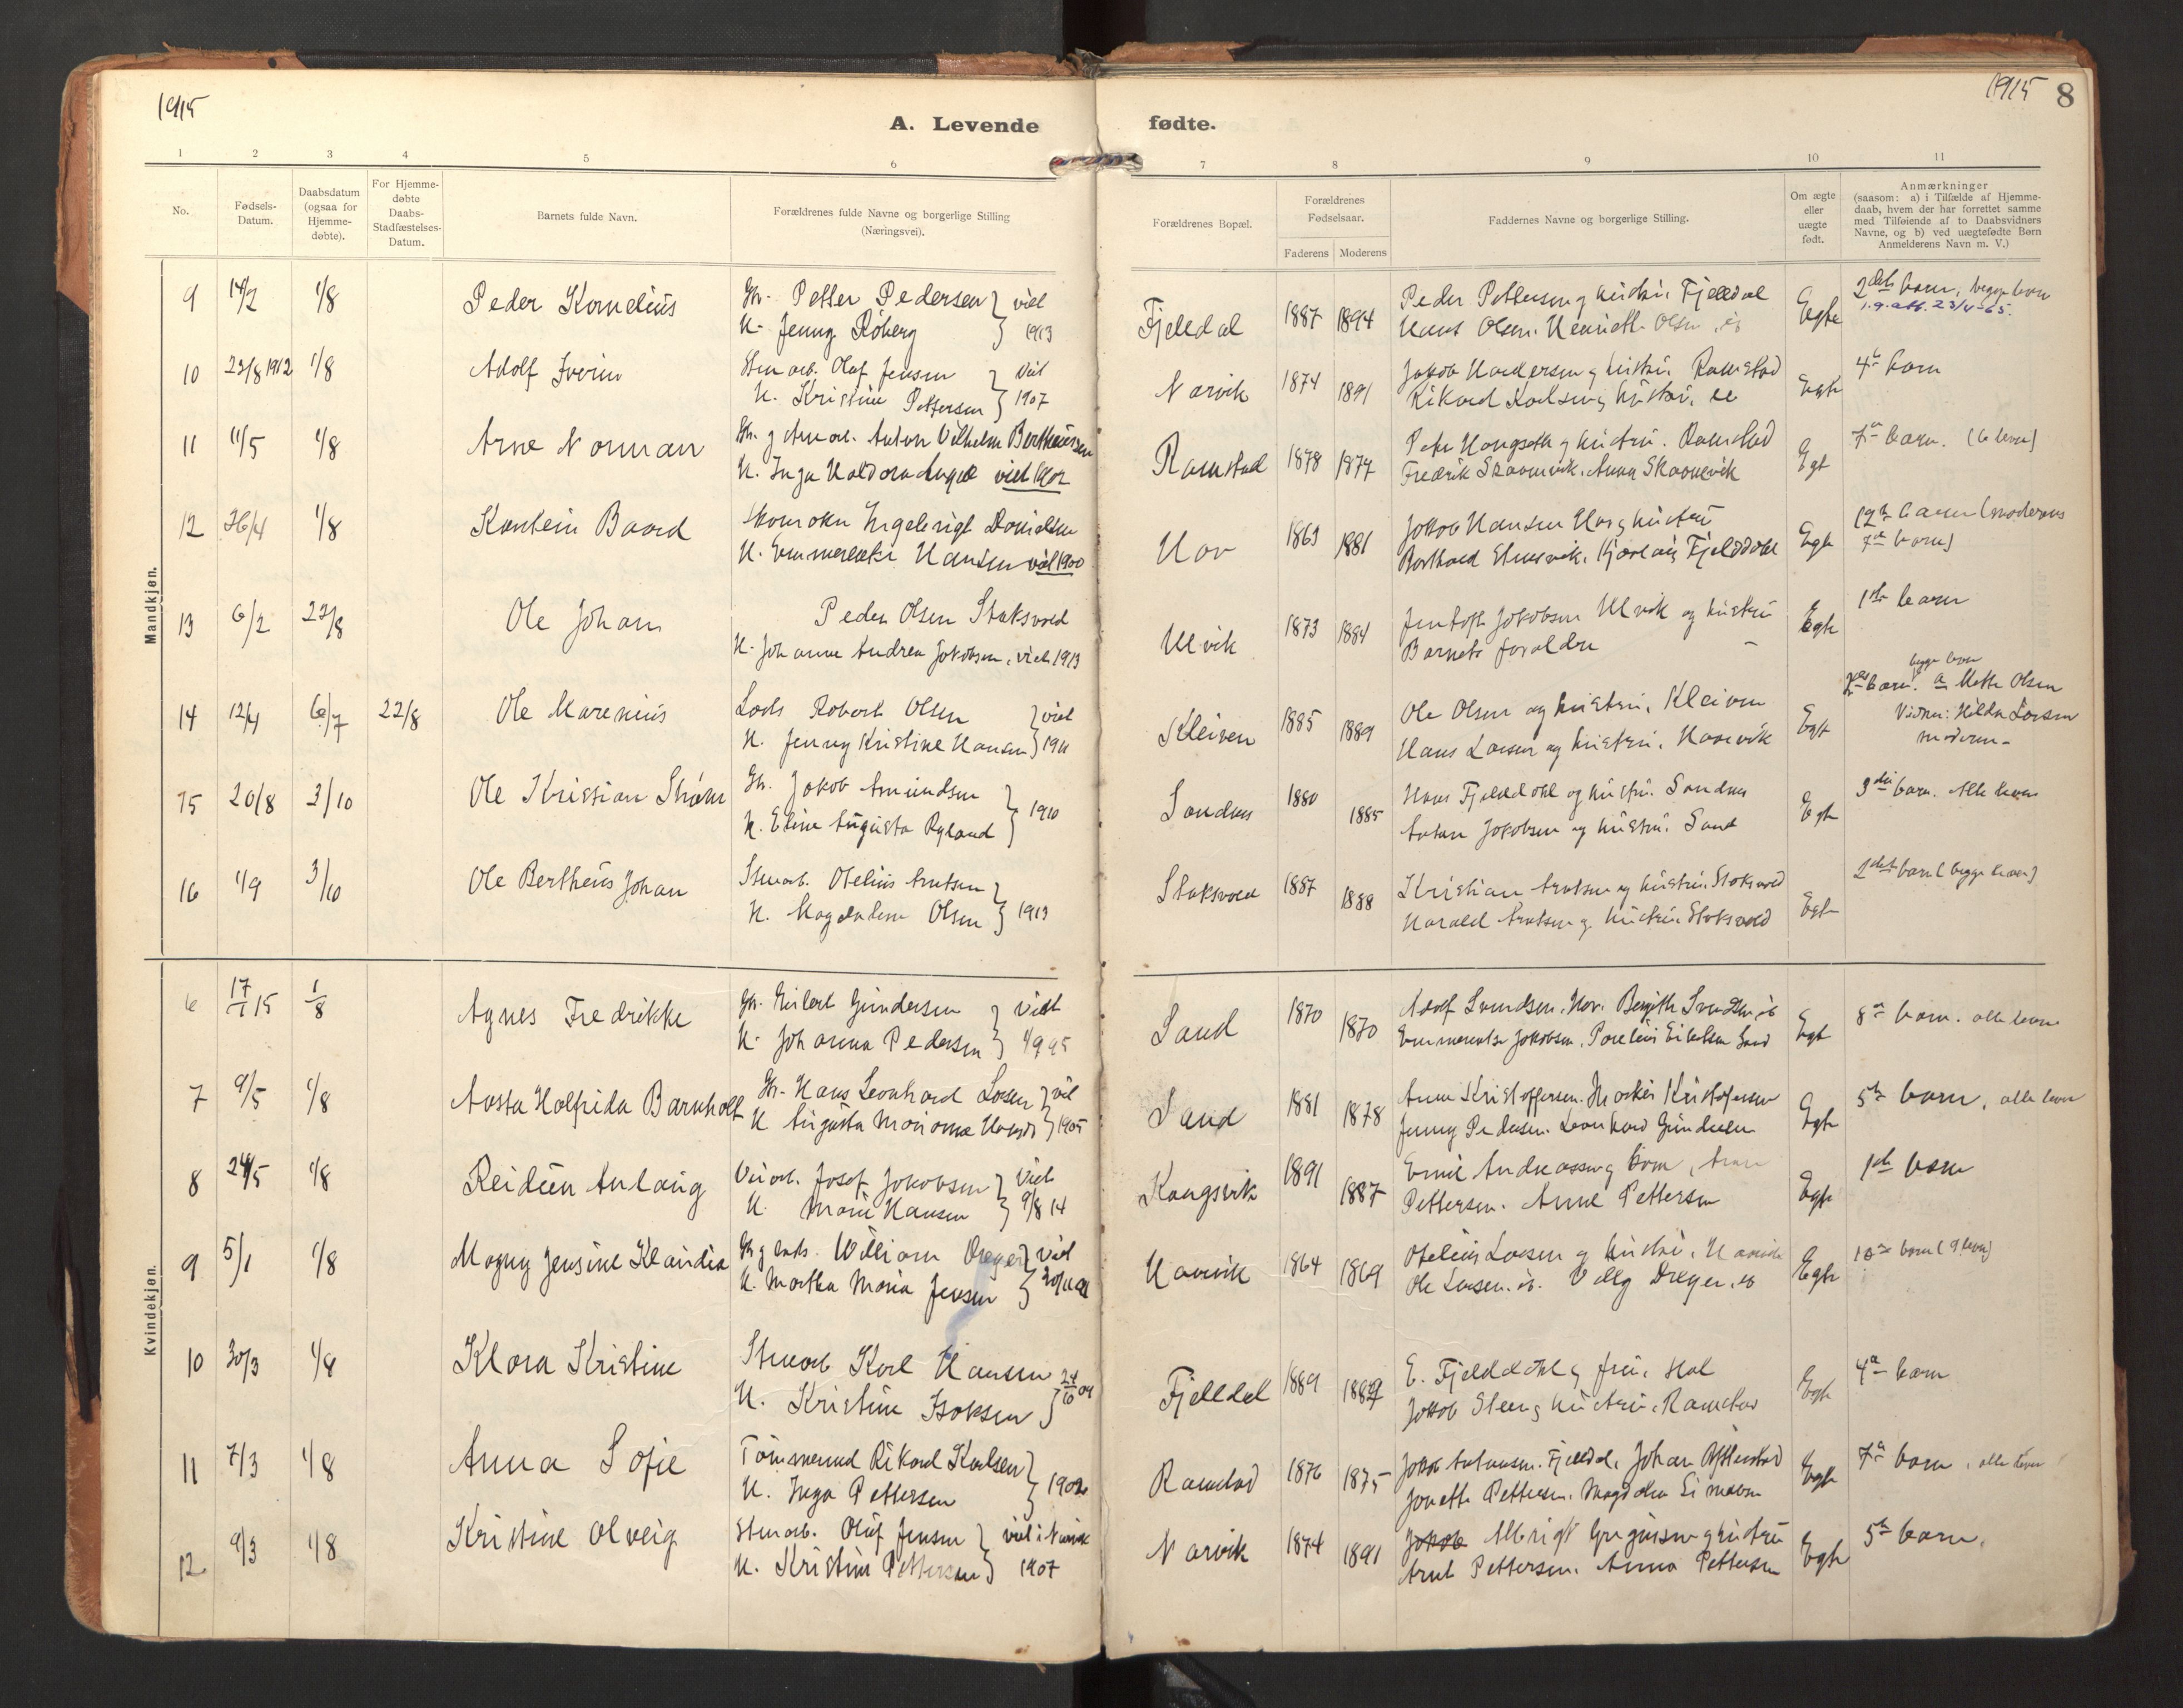 1915
A. Levende
fødte.
1915
8
1 2 3 4 5 6 7 8 9 10 11
No.
Fødsels-
Datum.
Daabsdatum
(ogsaa for
Hjemme-
døbte).
For Hjemme-
døbte
Daabs-
Stadfæstelses-
Datum.
Barnets fulde Navn.
Forældrenes fulde Navne og borgerlige Stilling
(Næringsvei).
Forældrenes Bopæl.
Forældrenes
Fødselsaar.
Faderens Moderens
Faddernes Navne og borgerlige Stilling.
Om ægte
eller
uægte
født.
Anmærkninger
(saasom: a) i Tilfælde af Hjemme-
daab, hvem der har forrettet samme
med Tilføiende af to Daabsvidners
Navne, og b) ved uægtefødte Børn
Anmelderens Navn m. V.)
Mandkjøn.
9 14/2 1/8 Peder Kornelius Gbr. Petter Pedersen viet Fjelldal 1887 1894 Peder Pettersen og hustru, Fjelldal Egte 2det barn, begge leve
H. Jenny Røberg 1913 Hans Olsen. Henriette Olsen, ib 1.g. att. 23/4-65.
10 23/8 1912 1/8 Adolf Iverin Stenarb. Olaf Jensen viet Narvik 1874 1891 Ramstad Egte 4de barn
H. Kristine Pettersen 1907 Rikard Karlsen og hustru, ib
11 11/5 1/8 Arne Norman Anton Vilhelm Bertheussen Ramstad 1878 1877 hustru. Ramstad Egt 7de barn. (6 leve)
H. Inga Haldora viet 1902 Fredrik Skaanevik. Anna Skaanevik
12 26/4 1/8 Baard Skomaker Ingebrigt Danielsen Hov 1863 1881 Jakob Hansen Hov og hustru Egte 12te barn (moderens
H. Emmerentse Hansen viet 1900 Fjelddahl 7de barn)
13 6/2 22/8 Ole Johan Peder Olsen Stoksvold Ulvik 1873 1884 Jentoft Jakobsen Ulvik og hustru Egte 1ste barn
H. Johanne Andrea Jakobsen, viet 1913 Barnets forældre
14 12/4 6/7 22/8 Ole Marenius Robert Olsen viet Kleiven 1885 1889 Ole Olsen og hustru, Kleiven Egt barn. begge leve a Mette Olsen
H. Jenny Kristine Hansen Hans Larsen og hustru, Vidner: Hilda Larsen
moderen
15 20/8 3/10 Ole Kristian Strøm Gbr. Jakob Amundsen 1910 Sandnes 1880 1885 Hans Fjelddahl og hustru. Sandnes Egte 3die barn. Alle leve
H. Eline Augusta Ryland Anton Jakobsen og hustru. Sand
16 1/9 3/10 Ole Bertheus Johan Stenarb. Otelius Arntsen Stoksvold 1887 1888 Kristian Arntsen og hustru. Stoksvold Egte 2det barn (begge leve)
H. Magdalene Olsen 1913 Harald Arntsen og hustru Stoksvold
Kvindekjøn.
6 17/1 15 1/8 Agnes Fredrikke Gbr. Eilert Gundersen viet Sand 1870 1870 Adolf Svendsen, Hov. Bergith Svendsen ib Egt 8de barn. alle leve
H. Johanna Pedersen Emmerentse Jakobsen,
7 9/5 1/8 Aasta Halfrida Barnholt Gbr. Hans Leonhard Larsen viet Sand 1881 1878 Arne Kristoffersen. Kristofersen Egte 5te barn, alle leve
H. Augusta Marianne 1905 Jenny Pedersen. Leonhard Gundersen
8 24/5 1/8 Reidun Anlaug Josef Jakobsen viet Kongsvik 1891 1887 Emil Andreassen Egte 1ste barn
H. Marie Hansen 9/8 14 Pettersen. Anne Pettersen
9 5/1 1/8 Magny Jensine Klaudia William Dreyer viet 1864 1869 Otelius Larsen og hustru, Egte 10de barn (9 leve)
H. Martha Maria Jensen Ole Larsen. ib. Dreyer, ib
10 30/3 1/8 Klara Kristine Stenarb Karl Hansen Fjelldal 1889 E. Fjelddahl og frue, Hol Egte 4de barn
H. Kristine Isaksen Jakob Steen og hustru, Ramstad
11 7/3 1/8 Anna Sofie Tømmermd Rikard Karlsen 1902 Ramstad 1876 1875 Jakob Antonsen. Fjelldal, Johan Egte 7de barn, alle leve
H. Inga Pettersen Jonette Pettersen.
12 9/3 1/8 Kristine Olveig Stenarb. Oluf Jensen viet i Narvik Narvik 1874 1891 Jakob Albrigt og hustru Egte 5te barn.
H. Kristine Pettersen 1907 Arnt Pettersen. Anna Pettersen